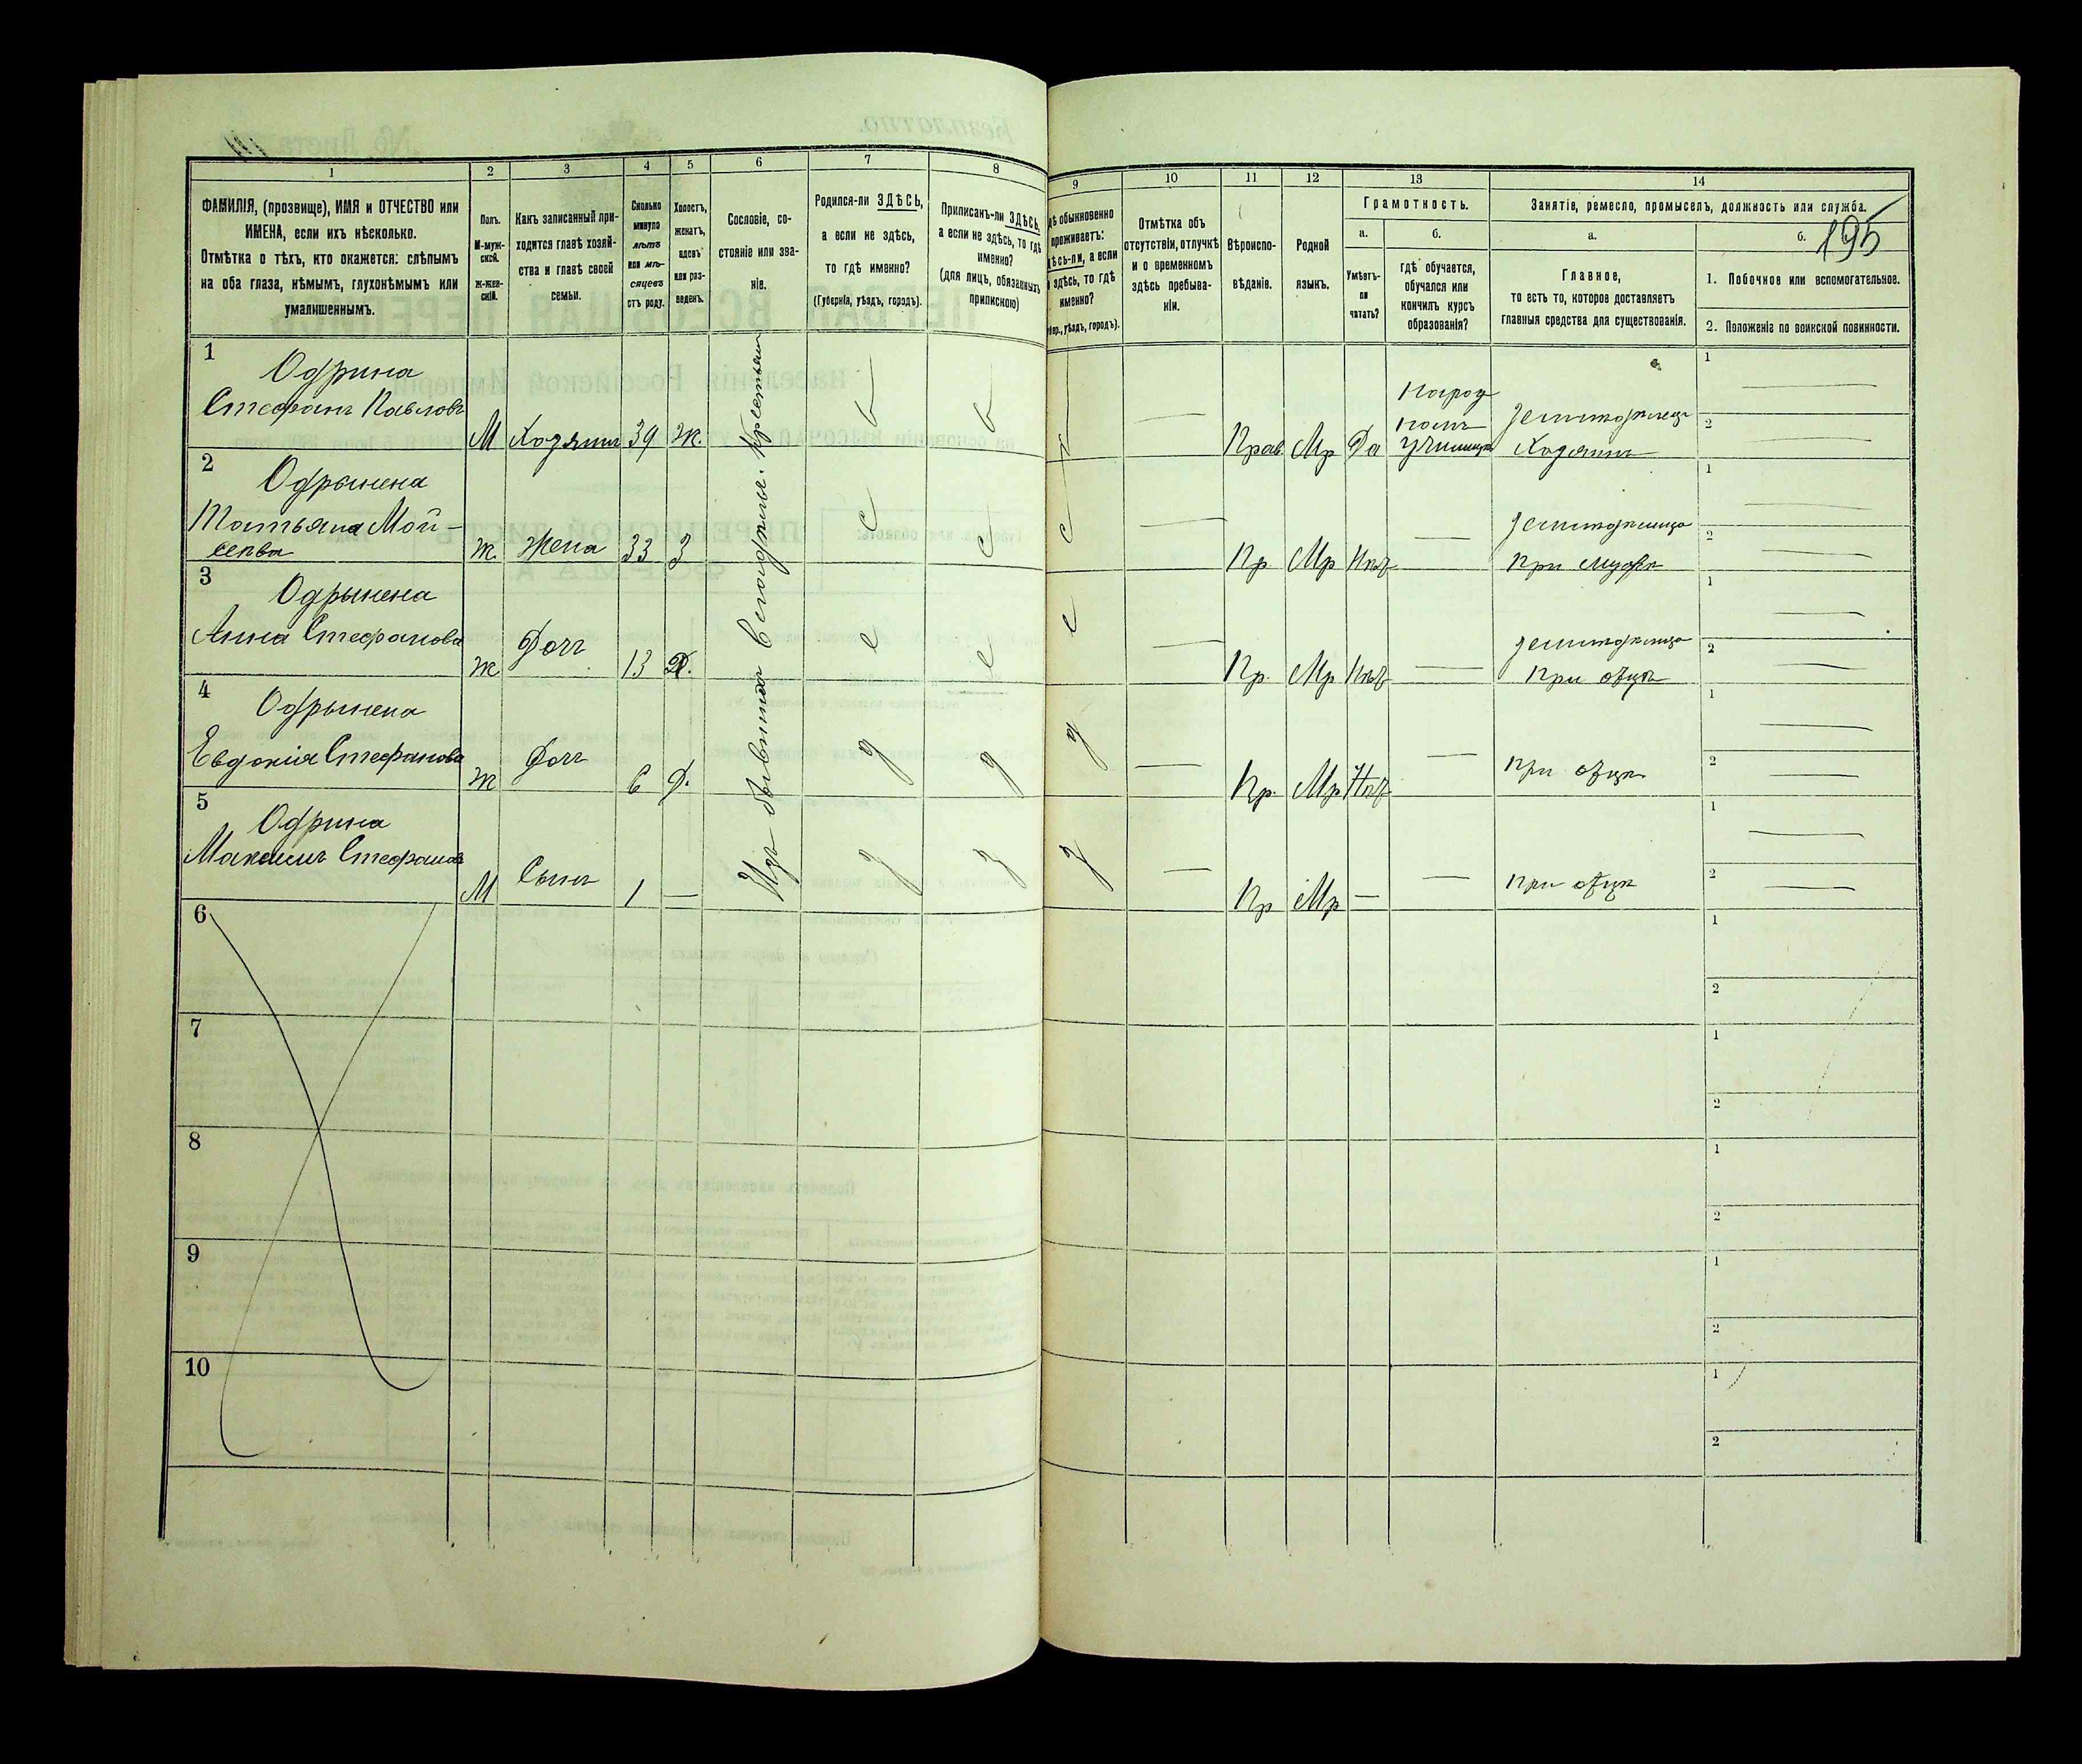 195
1
2
3
4
5
6
7
8
9
10
11
12
13
14
ФАМИЛІЯ, (прозвище), ИМЯ и ОТЧЕСТВО или
ИМЕНА, если ихъ нѣсколько.
Отмѣтка о тѣхъ, кто окажется: слѣпымъ
на оба глаза, нѣмымъ, глухонѣмымъ или
умалишеннымъ.
Полъ.
М-муж-
ской.
Ж-жен-
скій.
Какъ записанный при-
ходится главѣ хозяй-
ства и главѣ своей
семьи.
Сколько
минуло
лѣтъ
или мѣ-
сяцевъ
отъ роду.
Холостъ,
женатъ,
вдовъ
или раз-
веденъ.
Сословіе, со-
стояніе или зва-
ніе.
Родился-ли ЗДѢСЬ,
а если не здѣсь,
то гдѣ именно?
(Губернія, уѣздъ, городъ).
Приписанъ-ли ЗДѢСЬ,
а если не здѣсь, то гдѣ
именно?
(для лицъ, обязанныхъ
припискою)
обыкновенно
проживаетъ:
а если
здѣсь, то гдѣ
именно?
уѣздъ, городъ).
Отмѣтка объ
отсутствіи, отлучкѣ
и о временномъ
здѣсь пребыва-
ніи.
Вѣроиспо-
вѣданіе.
Родной
языкъ.
Грамотность.
а.
Умѣетъ-
ли
читать?
б.
гдѣ обучается,
обучался или
кончилъ курсъ
образованія?
Занятіе, ремесло, промыселъ, должность или служба.
а.
Главное,
то есть то, которое доставляетъ
главныя средства для существованія.
б.
1. Побочное или вспомогательное.
2. Положеніе по воинской повинности.
Изъ бывшихъ Крестьянъ
1
Одрина
Стефанъ Павловъ
М
Хозяинъ
39
Ж.
Прав
Мр
Да
Народ
училищѣ
Хозяинъ
1
2
2
Одрынена
Татьяна Мой-
сеева
Ж.
Жена
33
З
Пр
Мр
Нѣт
При мужѣ
1
2
3
Одрынена
Анна Стефанова
Ж
Доч
13
Д.
Пр.
Мр
Нѣт
При отцѣ
1
2
4
Одрынена
Евдокія Стефанова
Ж
Доч
6
Д.
Пр.
Мр
Нѣт
При отцѣ
1
2
5
Одрина
Максимъ Стефанов
М
Сынъ
1
—
Пр
Мр
—
При отцѣ
1
2
6
1
2
7
1
2
8
1
2
9
1
2
10
1
2